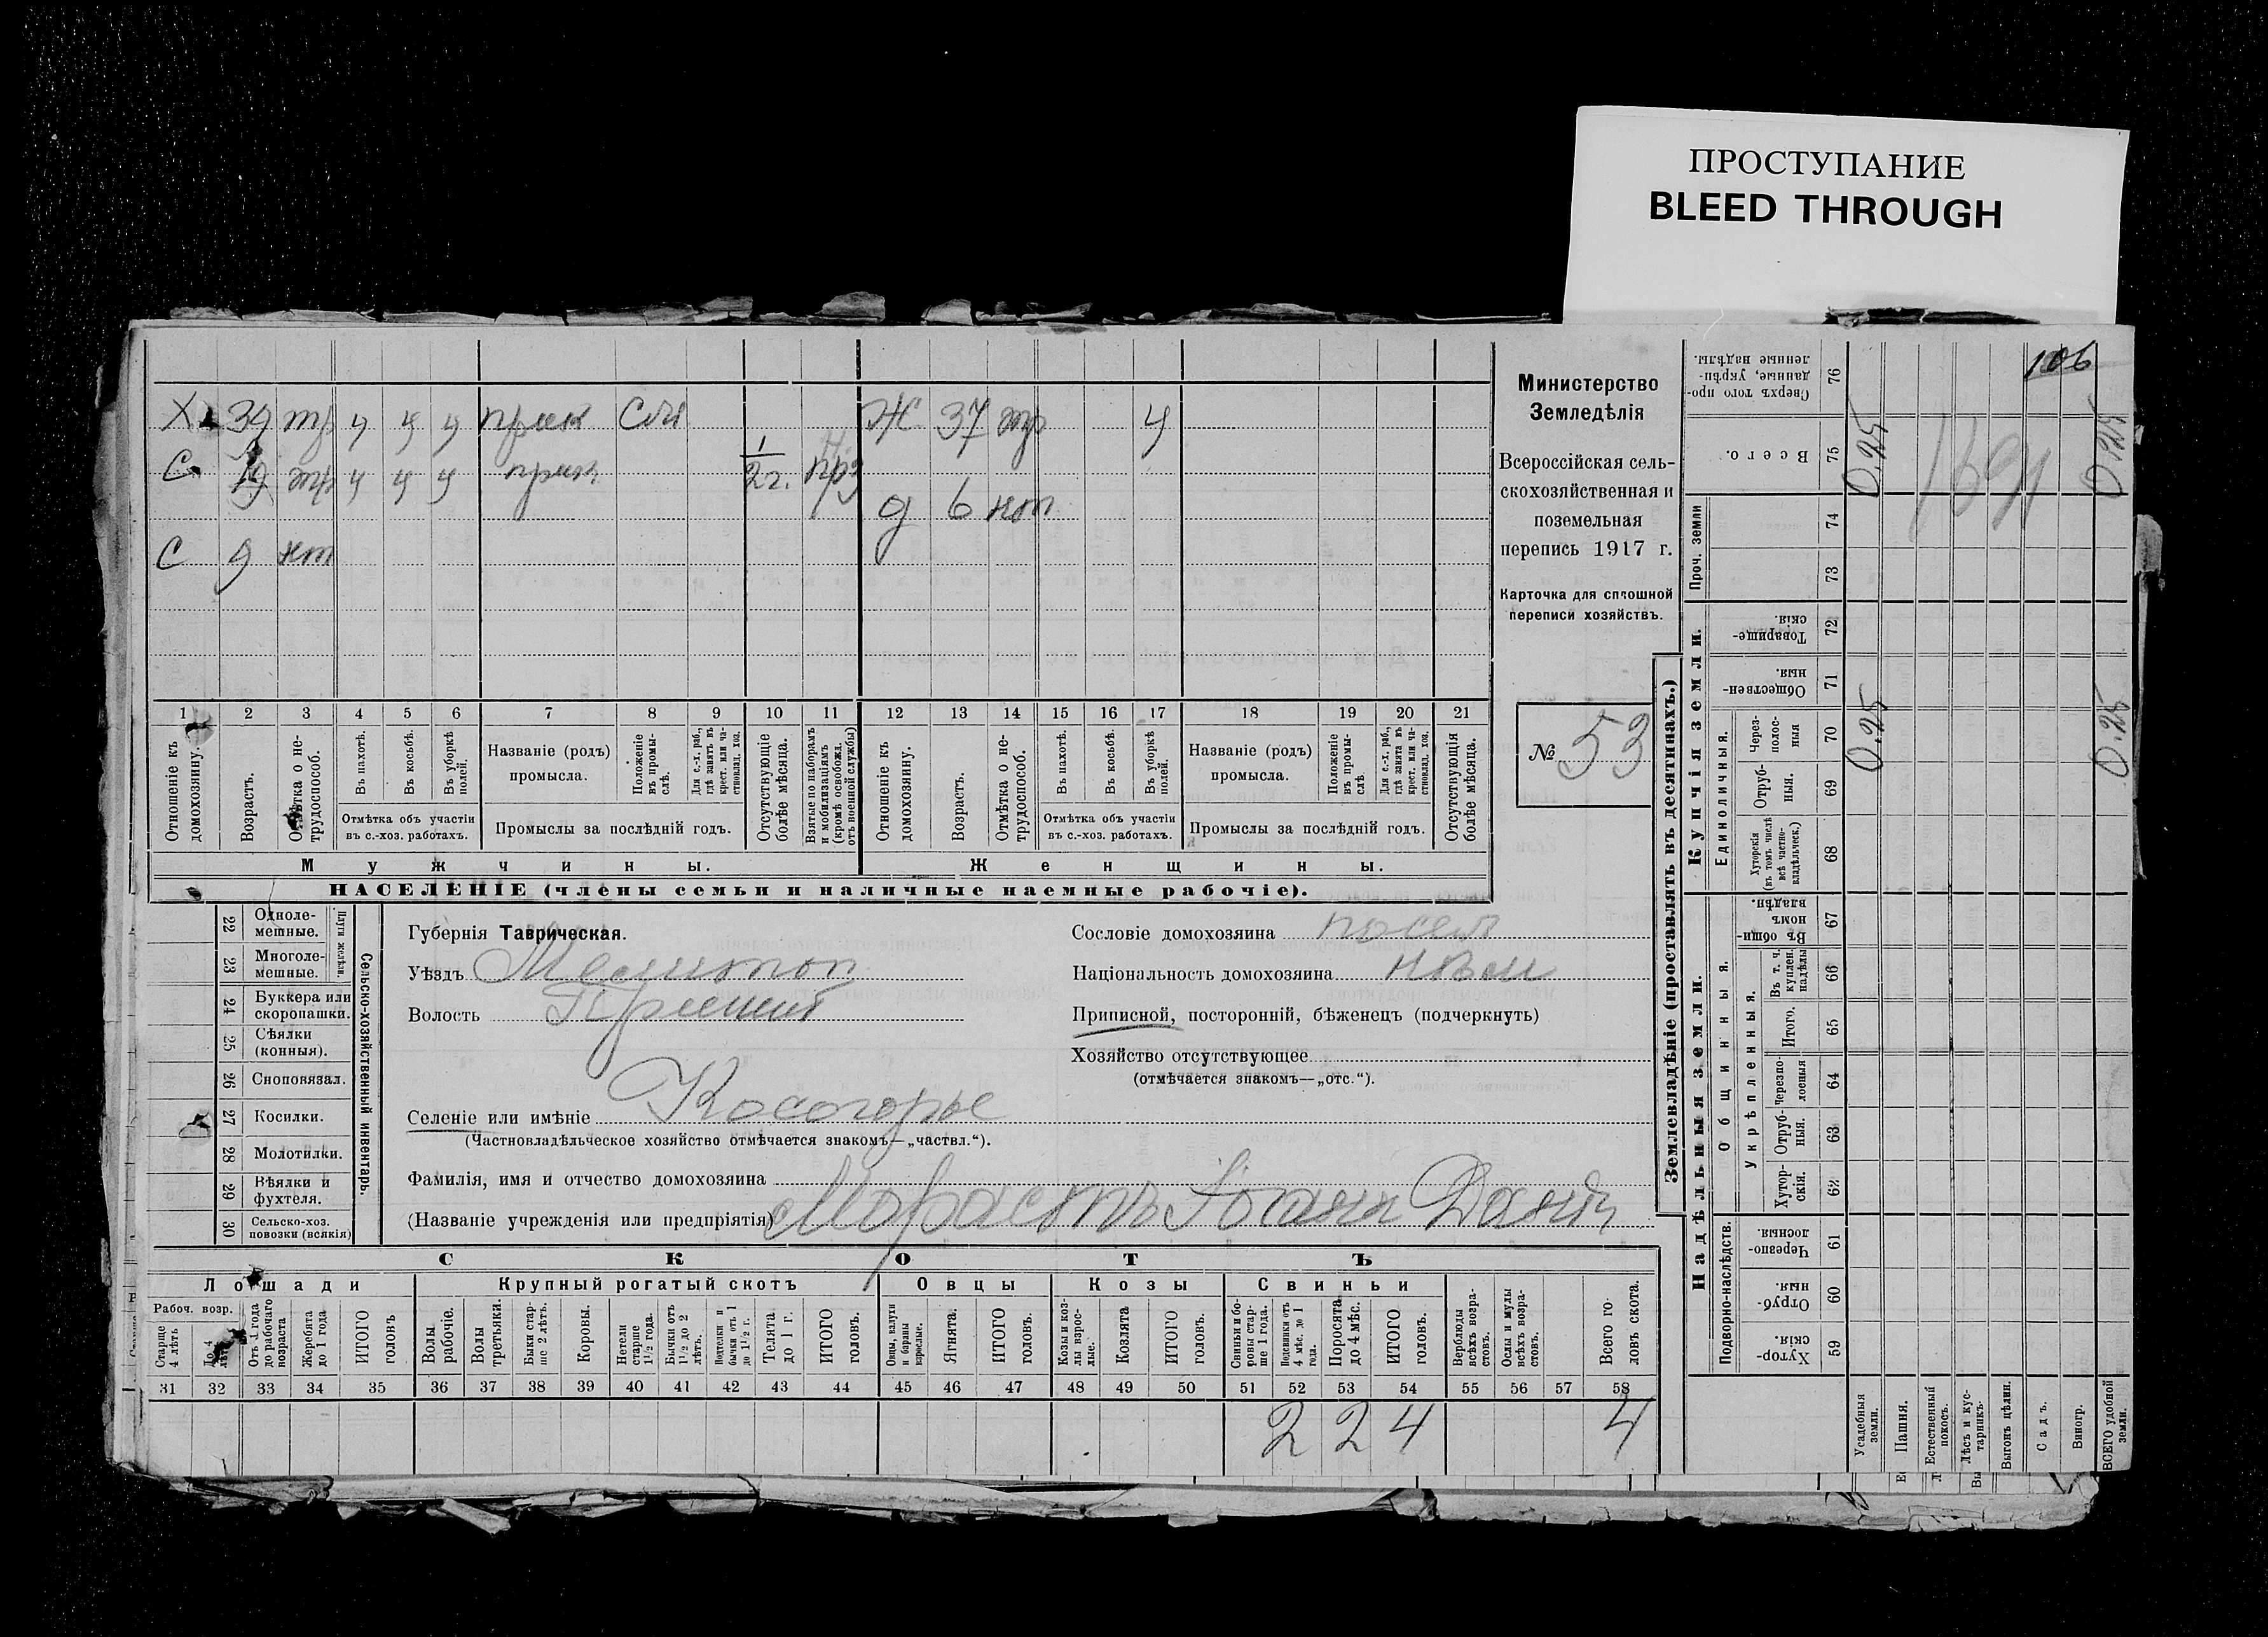 ПРОСТУПАНИЕ
BLEED THROUGH
106
Х 39 тр ч ч ч Ж 37 тр ч
С 19 ч ч ч 1/2 г.
д 6 нт
С 9 нт
1 2 3 4 5 6 7 8 9 10 11 12 13 14 15 16 17 18 19 20 21
Отношеніе къ домохозяину.
Возрастъ.
Отмѣтка о не-трудоспособ.
Въ пахотѣ.
Въ косьбѣ.
Въ уборкѣ полей.
Отмѣтка объ участіи въ с.-хоз. работахъ.
Названіе (родъ) промысла.
Положеніе въ промы-слѣ.
Для с.-х. раб., гдѣ занятъ въ крест. или ча-стновлад. хоз.
Промыслы за послѣдній годъ.
Отсутствующіе болѣе мѣсяца.
Взятые по наборамъ и мобилизаціямъ (кромѣ освобожд. отъ военной службы)
Отношеніе къ домохозяину.
Возрастъ.
Отмѣтка о не-трудоспособ.
Въ пахотѣ.
Въ косьбѣ.
Въ уборкѣ полей.
Отмѣтка объ участіи въ с.-хоз. работахъ.
Названіе (родъ) промысла.
Положеніе въ промы-слѣ
Для с.-х. раб., гдѣ занята въ крест. или ча-стновлад. хоз.
Промыслы за послѣдній годъ.
Отсутствующія болѣе мѣсяца.
Мужчины.
Женщины.
НАСЕЛЕНІЕ (члены семьи и наличные наемные рабочіе).
Министерство
Земледѣлія
Всероссійская сель-
скохозяйственная и
поземельная
перепись 1917 г.
Карточка для сплошной
переписи хозяйствъ.
№ 53
22 Одноле-мешные.
23 Многоле-мешные.
Плуги желѣзн.
24 Буккера или скоропашки.
25 Сѣялки (конныя).
26 Сноповязал.
27 Косилки.
28 Молотилки.
29 Вѣялки и фухтеля.
30 Сельско-хоз. повозки (всякія)
Сельско-хозяйственный инвентарь.
Губернія Таврическая.
Уѣздъ Мелитоп
Волость Пришиб
Селеніе или имѣніе Косогорье
(Частновладѣльческое хозяйство отмѣчается знакомъ—„частвл.“).
Фамилія, имя и отчество домохозяина
(Названіе учрежденія или предпріятія) Іоганн Данил
Сословіе домохозяина посел
Національность домохозяина нѣм
Приписной, посторонній, бѣженецъ (подчеркнуть)
Хозяйство отсутствующее
(отмѣчается знакомъ—„отс.“).
СКОТЪ
Лошади
Крупный рогатый скотъ
Овцы
Козы
Свиньи
Рабоч. возр.
Старше 4 лѣтъ
До 4 лѣтъ
Отъ 1 года до рабочаго возраста
Жеребята до 1 года
ИТОГО головъ
Волы рабочіе.
Волы третьяки.
Быки стар-ше 2 лѣтъ.
Коровы.
Нетели старше 1½ года.
Бычки отъ 1½ до 2 лѣтъ.
Подтелки и бычки отъ 1 до 1½ г.
Телята до 1 г.
ИТОГО головъ.
Овцы, валухи и бараны взрослые.
Ягнята.
ИТОГО головъ.
Козы и коз-лы взрос-лые.
Козлята
ИТОГО головъ.
Свиньи и бо-ровы стар-ше 1 года.
Подсвинки отъ 4 мѣс. до 1 года.
Поросята до 4 мѣс.
ИТОГО головъ.
Верблюды всѣхъ возра-стовъ.
Ослы и мулы всѣхъ возра-стовъ.
Всего го-ловъ скота.
31 32 33 34 35 36 37 38 39 40 41 42 43 44 45 46 47 48 49 50 51 52 53 54 55 56 57 58
2 2 4 4
Землевладѣніе (проставлять въ десятинахъ.)
Надѣльныя земли.
Купчія земли.
Проч. земли
Подворно-наслѣдств.
Общинныя.
Укрѣпленныя.
Единоличныя.
Сверхъ того про-данные, укрѣп-ленные надѣлы. 76
Всего. 75 0.25 0.25
74
73
Товарище-скія. 72
Обществен-ныя. 71
Через-полос-ныя 70 0.25 0.25
Отруб-ныя. 69
Хуторскія (въ томъ числѣ всѣ частно-владѣльческ.) 68
Въ общин-номъ владѣн. 67
Въ т. ч. куплен. надѣлы 66
Итого. 65
Черезпо-лосныя 64
Отруб-ныя. 63
Хутор-скія. 62
Черезпо-лосныя. 61
Отруб-ныя. 60
Хутор-скія. 59
Усадебныя земли.
Пашня.
Естественный покосъ.
Лѣсъ и кус-тарникъ.
Выгонъ цѣлин.
Садъ.
Виногр.
ВСЕГО удобной земли.